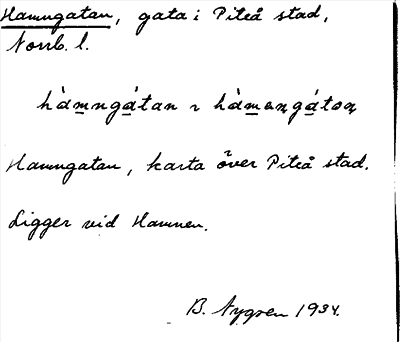 Hamngatan, gata i Piteå stad,
Norrb. l.
hàmngátan ~ hàmaŋgátoŋ
Hamngatan, karta över Piteå stad.
Ligger vid Hamnen.
B. Nygren 1934.